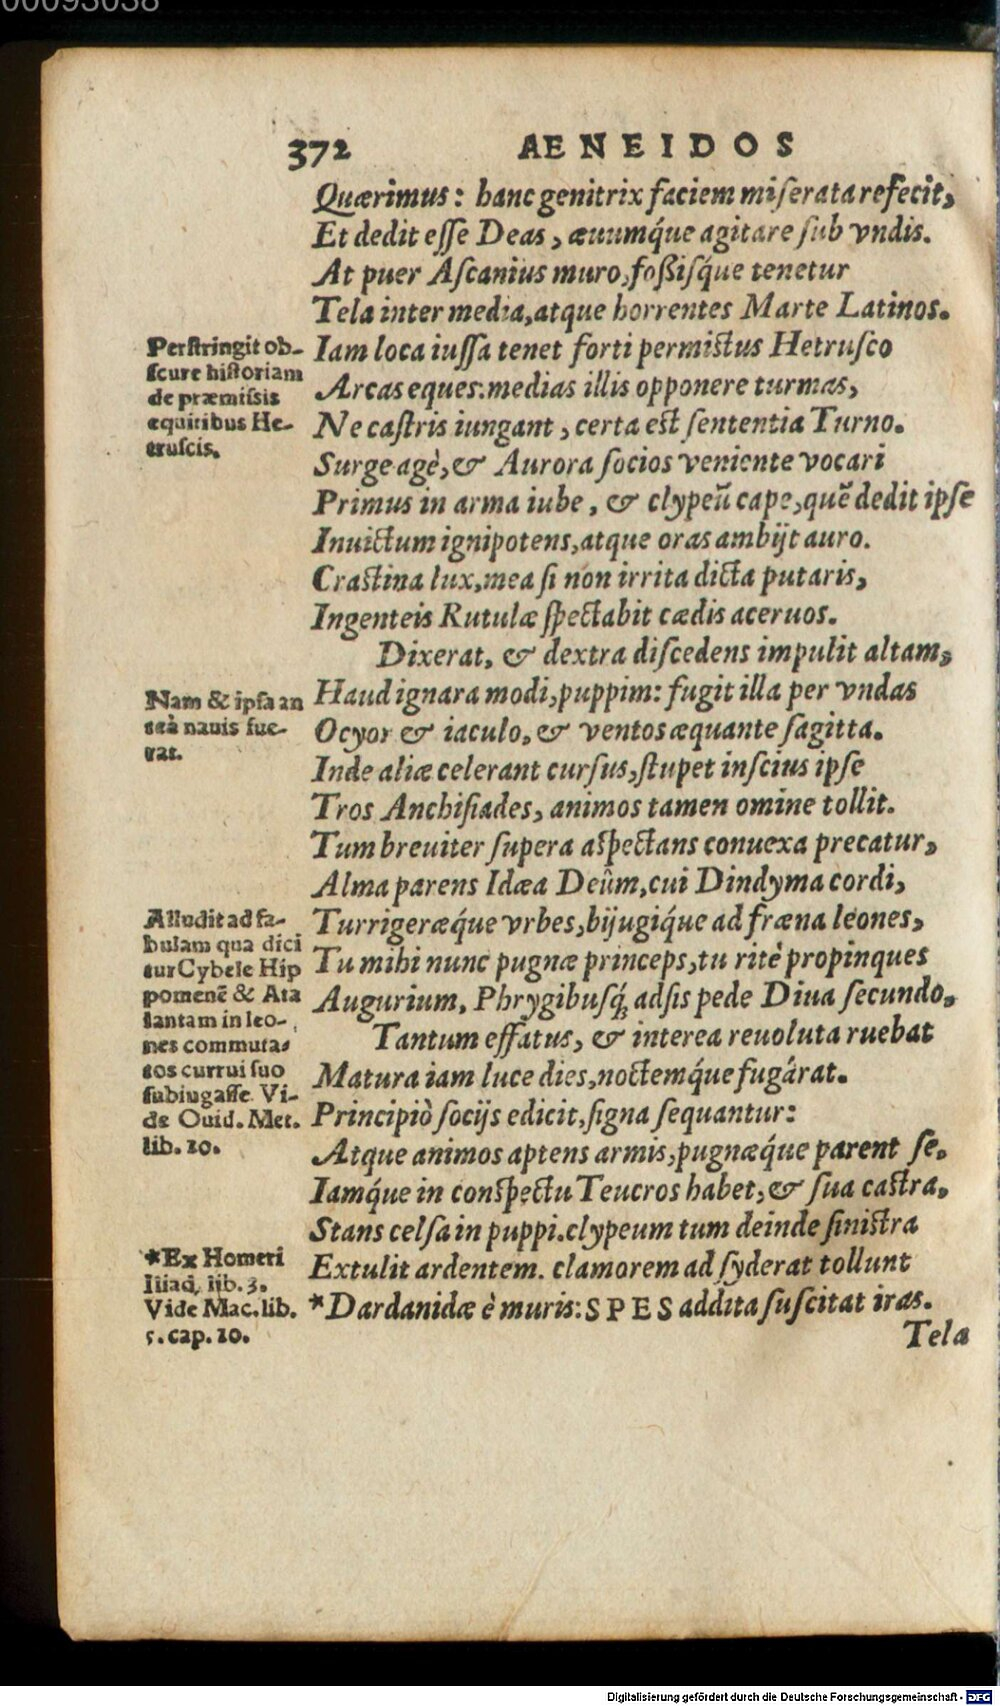 00093038
372 AENEIDOS
Quærimus: hanc genitrix faciem miſerata refecit,
Et dedit eſſe Deas, æuumq́ue agitare ſub vndis.
At puer Aſcanius muro, foßiſq́ue tenetur
Tela inter media, atque horrentes Marte Latinos.
Perſtringit ob-
ſcure hiſtoriam
de præmiſsis
equitibus He-
truſcis.
Iam loca iuſſa tenet forti permiſtus Hetruſco
Arcas eques: medias illis opponere turmas,
Ne caſtris iungant, certa eſt ſententia Turno.
Surge agè, & Aurora ſocios veniente vocari
Primus in arma iube, & clypeū cape, quē dedit ipſe
Inuictum ignipotens, atque oras ambijt auro.
Craſtina lux, mea ſi non irrita dicta putaris,
Ingenteis Rutulæ ſpectabit cædis aceruos.
Dixerat, & dextra diſcedens impulit altam,
Nam & ipſa an
teà nauis fue-
rat.
Haud ignara modi, puppim: fugit illa per vndas
Ocyor & iaculo, & ventos æquante ſagitta.
Inde aliæ celerant curſus, ſtupet inſcius ipſe
Tros Anchiſiades, animos tamen omine tollit.
Tum breuiter ſupera aſpectans conuexa precatur,
Alma parens Idæa Deûm, cui Dindyma cordi,
Alludit ad fa-
bulam qua dici
tur Cybele Hip
pomenē & Ata
lantam in leo-
nes commuta-
tos currui ſuo
ſubiugaſſe. Vi-
de Ouid. Met.
lib. 10.
Turrigeræq́ue vrbes, bijugiq́ue ad fræna leones,
Tu mihi nunc pugnæ princeps, tu ritè propinques
Augurium, Phrygibuſq́; adſis pede Diua ſecundo.
Tantum effatus, & interea reuoluta ruebat
Matura iam luce dies, noctemq́ue fugârat.
Principiò ſocijs edicit, ſigna ſequantur:
Atque animos aptent armis, pugnæq́ue parent ſe.
Iamq́ue in conſpectu Teucros habet, & ſua caſtra,
Stans celſa in puppi. clypeum tum deinde ſiniſtra
*Ex Homeri
Iliad. lib. 3.
Vide Mac. lib.
5. cap. 10.
Extulit ardentem. clamorem ad ſyderat tollunt
*Dardanidæ è muris: SPES addita ſuſcitat iras.
Tela
Digitalisierung gefördert durch die Deutsche Forschungsgemeinschaft - DFG